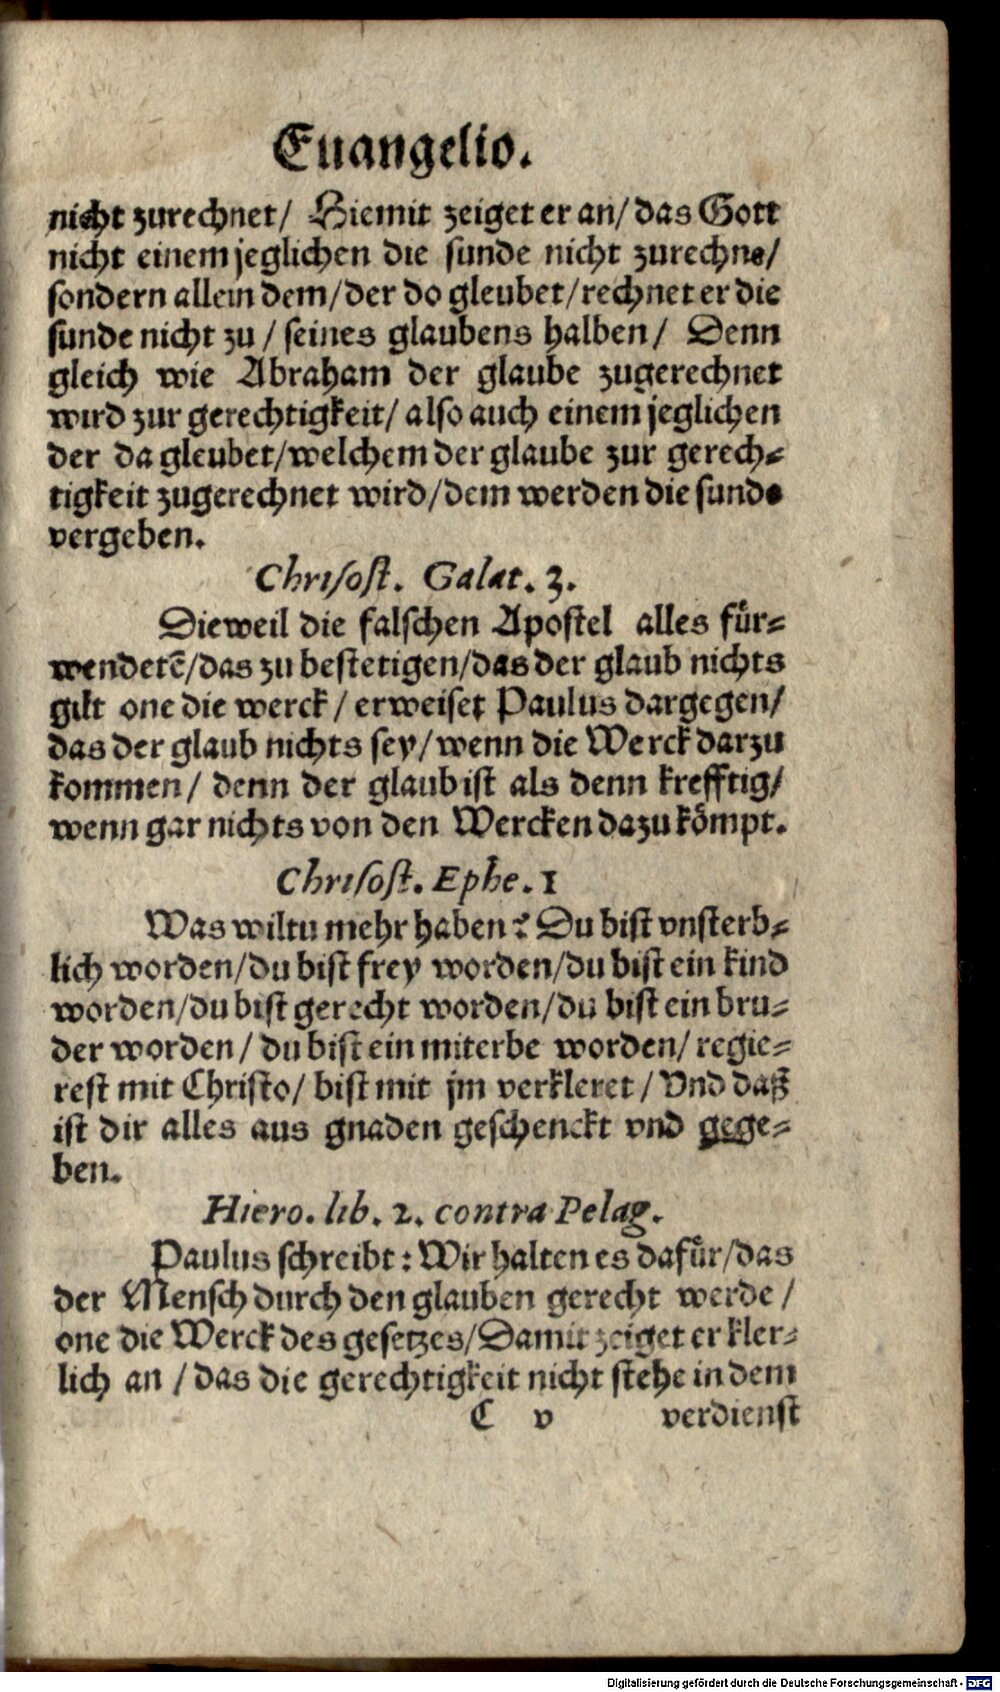 Euangelio.
nicht zurechnet/ Hiemit zeiget er an/ das Gott
nicht einem jeglichen die sunde nicht zurechne/
sondern allein dem/ der do gleubet/ rechnet er die
sunde nicht zu/ seines glaubens halben/ Denn
gleich wie Abraham der glaube zugerechnet
wird zur gerechtigkeit/ also auch einem jeglichen
der da gleubet/ welchem der glaube zur gerech⸗
tigkeit zugerechnet wird/ dem werden die sunde
vergeben.
Chrisost. Galat. 3.
Dieweil die falschen Apostel alles fuͤr⸗
wendetē/ das zu bestetigen/ das der glaub nichts
gilt one die werck/ erweiset Paulus dargegen/
das der glaub nichts sey/ wenn die Werck darzu
kommen/ denn der glaub ist als denn krefftig/
wenn gar nichts von den Wercken dazu koͤmpt.
Chrisost. Ephe. 1
Was wiltu mehr haben? Du bist vnsterb⸗
lich worden/ du bist frey worden/ du bist ein kind
worden/ du bist gerecht worden/ du bist ein bru⸗
der worden/ du bist ein miterbe worden/ regie⸗
rest mit Christo/ bist mit jm verkleret/ Vnd daß
ist dir alles aus gnaden geschenckt vnd gege⸗
ben.
Hiero. lib. 2. contra Pelag.
Paulus schreibt: Wir halten es dafuͤr/ das
der Mensch durch den glauben gerecht werde/
one die Werck des gesetzes/ Damit zeiget er kler⸗
lich an/ das die gerechtigkeit nicht stehe in dem
C v verdienst
Digitalisierung gefördert durch die Deutsche Forschungsgemeinschaft - DFG